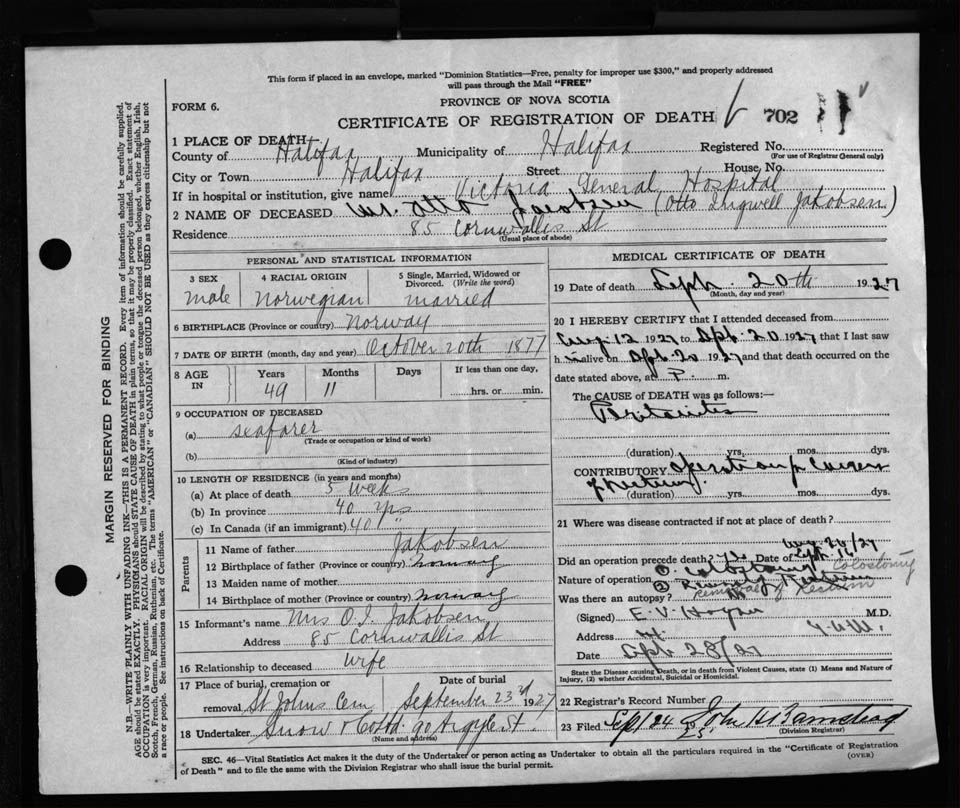 This form if placed in an envelope, marked "Dominion Statistics—Free, penalty for improper use $300," and properly addressed
will pass through the Mail "FREE"
FORM 6.
PROVINCE OF NOVA SCOTIA
CERTIFICATE OF REGISTRATION OF DEATH 702
1 PLACE OF DEATH
County of Halifax Municipality of Halifax Registered No.
(For use of Registrar General only)
City or Town Halifax Street House No.
If in hospital or institution, give name Victoria General Hospital
2 NAME OF DECEASED Mr. Otto Jacobsen (Otto Jakobsen)
Residence 85 Cornwallis St
(Usual place of abode)
PERSONAL AND STATISTICAL INFORMATION
3 SEX
male
4 RACIAL ORIGIN
Norwegian
5 Single, Married, Widowed or
Divorced. (Write the word)
married
6 BIRTHPLACE (Province or country) Norway
7 DATE OF BIRTH (month, day and year) October 20th 1877
8 AGE IN
Years Months Days If less than one day,
49 11 hrs. or min.
9 OCCUPATION OF DECEASED
(a) seafarer
(Trade or occupation or kind of work)
(b)
(Kind of industry)
10 LENGTH OF RESIDENCE (in years and months)
(a) At place of death 5 weeks
(b) In province 40 yrs
(c) In Canada (if an immigrant) 40 "
Parents
11 Name of father Jakobsen
12 Birthplace of father (Province or country) Norway
13 Maiden name of mother
14 Birthplace of mother (Province or country) Norway
15 Informant's name Mrs O.I. Jakobsen
Address 85 Cornwallis St
16 Relationship to deceased wife
17 Place of burial, cremation or Date of burial
removal St Johns Cem September 23rd 1927
18 Undertaker Snow & Co Ltd 90 Argyle St.
(Name and address)
MEDICAL CERTIFICATE OF DEATH
19 Date of death Sept. 20th 1927
(Month, day and year)
20 I HEREBY CERTIFY that I attended deceased from
Aug. 12 1927 to Sept. 20 1927 that I last saw
him alive on Sept. 20 1927 and that death occurred on the
date stated above, at P. m.
The CAUSE OF DEATH was as follows:—
Peritonitis
(duration) yrs. mos. dys.
CONTRIBUTORY Operation for Cancer
of Rectum
(duration) yrs. mos. dys.
21 Where was disease contracted if not at place of death?
Did an operation precede death? yes Date of Aug 20/27
Sept. 16
Nature of operation ① Colostomy Colostomy
② Removal Rectum
Removal of Rectum
Was there an autopsy?
(Signed) E. V. Hogan M.D.
Address
Date Sept 28/27
State the Disease causing Death, or in death from Violent Causes, state (1) Means and Nature of
Injury, (2) whether Accidental, Suicidal or Homicidal.
22 Registrar's Record Number
23 Filed Sept 24 19
(Division Registrar)
SEC. 46—Vital Statistics Act makes it the duty of the Undertaker or person acting as Undertaker to obtain all the particulars required in the "Certificate of Registration
of Death" and to file the same with the Division Registrar who shall issue the burial permit.
(OVER)
MARGIN RESERVED FOR BINDING
N.B.—WRITE PLAINLY WITH UNFADING INK—THIS IS A PERMANENT RECORD. Every item of information should be carefully supplied.
AGE should be stated EXACTLY. PHYSICIANS should STATE CAUSE OF DEATH in plain terms, so that it may be properly classified. Exact statement of
OCCUPATION is very important. RACIAL ORIGIN will be described by stating to what people or tongue the deceased person belonged, whether English, Irish,
Scotch, French, German, Russian, Ruthenian, etc. The terms "AMERICAN" or "CANADIAN" SHOULD NOT BE USED as they express citizenship but not
a race or people. See instructions on back of Certificate.